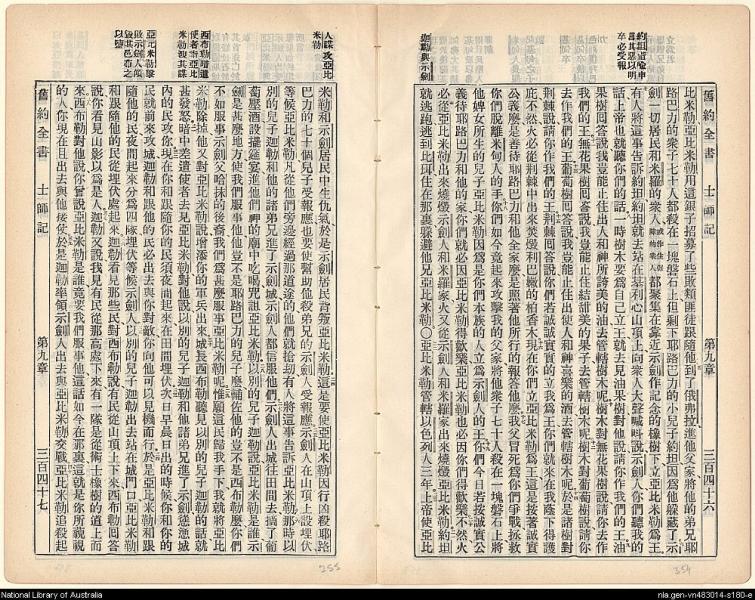 約坦設喩申言其惡以明卒必受報
迦勒與示劍
舊約全書 士師記 第九章 三百四十六
比米勒亞比米勒用這銀子招募了些敗類匪徒跟隨他到了俄弗拉進他父家將他的弟兄耶
路巴力的衆子七十人都殺在一塊磐石上但剩下耶路巴力的小兒子約坦因爲他躱藏了示
劍一切居民和米羅的衆人都聚集在靠近示劍作記念的橡樹下立亞比米勒爲王
有人將這事告訴約坦約坦就去站在基利心山頂上向衆人大聲喊呌說示劍人你們聽我的
話上帝也就聽你們的話一時樹木要爲自己立王就去見油果樹對他說請你作我們的王油
果樹回答說我豈能止住出人和神所誇美的油去管轄樹木呢樹木對無花果樹說請你去作
我們的王無花果樹回答說我豈能止住結甜美的果子去管轄樹木呢樹木對葡萄樹說請你
去作我們的王葡萄樹回答說我豈能止住出使人和神喜樂的酒去管轄樹木呢於是諸樹對
荆棘說請你作我們的王荆棘回答說你們若誠誠實實的立我爲王你們就來在我蔭下得護
庇不然火必從荆棘中出來焚燬利巴嫩的柏香木現在你們立亞比米勒爲王這是按着誠實
公義麽是善待耶路巴力和他全家麽是照著他所行的報答他麽我父冒死爲你們爭戰拯救
你們脫離米甸人的手你們如今竟起來攻擊我的父家將他衆子七十人殺在一塊磐石上將
他婢女所生的兒子亞比米勒因爲是你們本族的人立爲示劍人的王你們今日若按誠實公
義待耶路巴力和他的家你們就必因亞比米勒得歡樂亞比米勒也必因你們得歡樂不然火
必從亞比米勒出來燒燬示劍人和米羅家火又從示劍人和米羅家出來燒燬亞比米勒約坦
就逃跑逃到比珥住在那裏躱避他兄亞比米勒〇亞比米勒管轄以色列人三年上帝使亞比
人謀攻亞比米勒
西布勒暗遣使者吿亞比米勒洩其謀
亞比米勒擊敗示劍人毀其邑布之以鹽
舊約全書 士師記 第九章 三百四十七
米勒和示劍居民中生仇氣於是示劍居民背叛亞比米勒這是要使亞比米勒因行凶殺耶路
巴力的七十個兒子受報應也要使幫助他殺弟兄的示劍人受報應示劍人在山頂上設埋伏
等候亞比米勒凡從他們旁邊經過那道途的他們就搶刼有人將這事告訴亞比米勒那時以
別的兒子迦勒和他的諸弟兄進了示劍城示劍人都信服他們示劍人出城往田間去摘了葡
萄壓酒設擺筵宴進他們神的廟中吃喝咒詛亞比米勒以別的兒子迦勒說亞比米勒是誰示
劍是甚麽地方使我們服事他他豈不是耶路巴力的兒子麽輔佐他的豈不是西布勒麽你們
不如服事示劍父哈抹的後裔我們爲甚麽服事亞比米勒呢惟願這民歸我手下我就將亞比
米勒除掉他又對亞比米勒說增添你的軍兵出來城長西布勒聽見以別的兒子迦勒的話就
甚發怒暗中差遣使者去見亞比米勒對他說以別的兒子迦勒和他諸弟兄進了示劍慫慂城
內的民攻你現在你和跟隨你的民須夜間起來在田間埋伏次日早晨日出的時候你和你的
民就前來攻城迦勒和跟他的民必出去與你對敵你向他可以見機而行於是亞比米勒和跟
隨他的民夜間起來分爲四隊埋伏等候示劍人以別的兒子迦勒出去站在城門口亞比米勒
和跟隨他的民從埋伏處起來迦勒看見那些民對西布勒說有民從山頂上下來西布勒回答
說你看見山影以爲是人迦勒又說我見有民從那高處下來有一隊是從術士橡樹的道上而
來西布勒對他說你曾說亞比米勒是誰竟要我們服事他這話如今在那裏這就是你所藐視
的人你現在且出去與他接仗於是迦勒率領示劍人出去與亞比米勒交戰亞比米勒追殺起
354
355
National Library of Australia
nla.gen-vn483014-s180-e